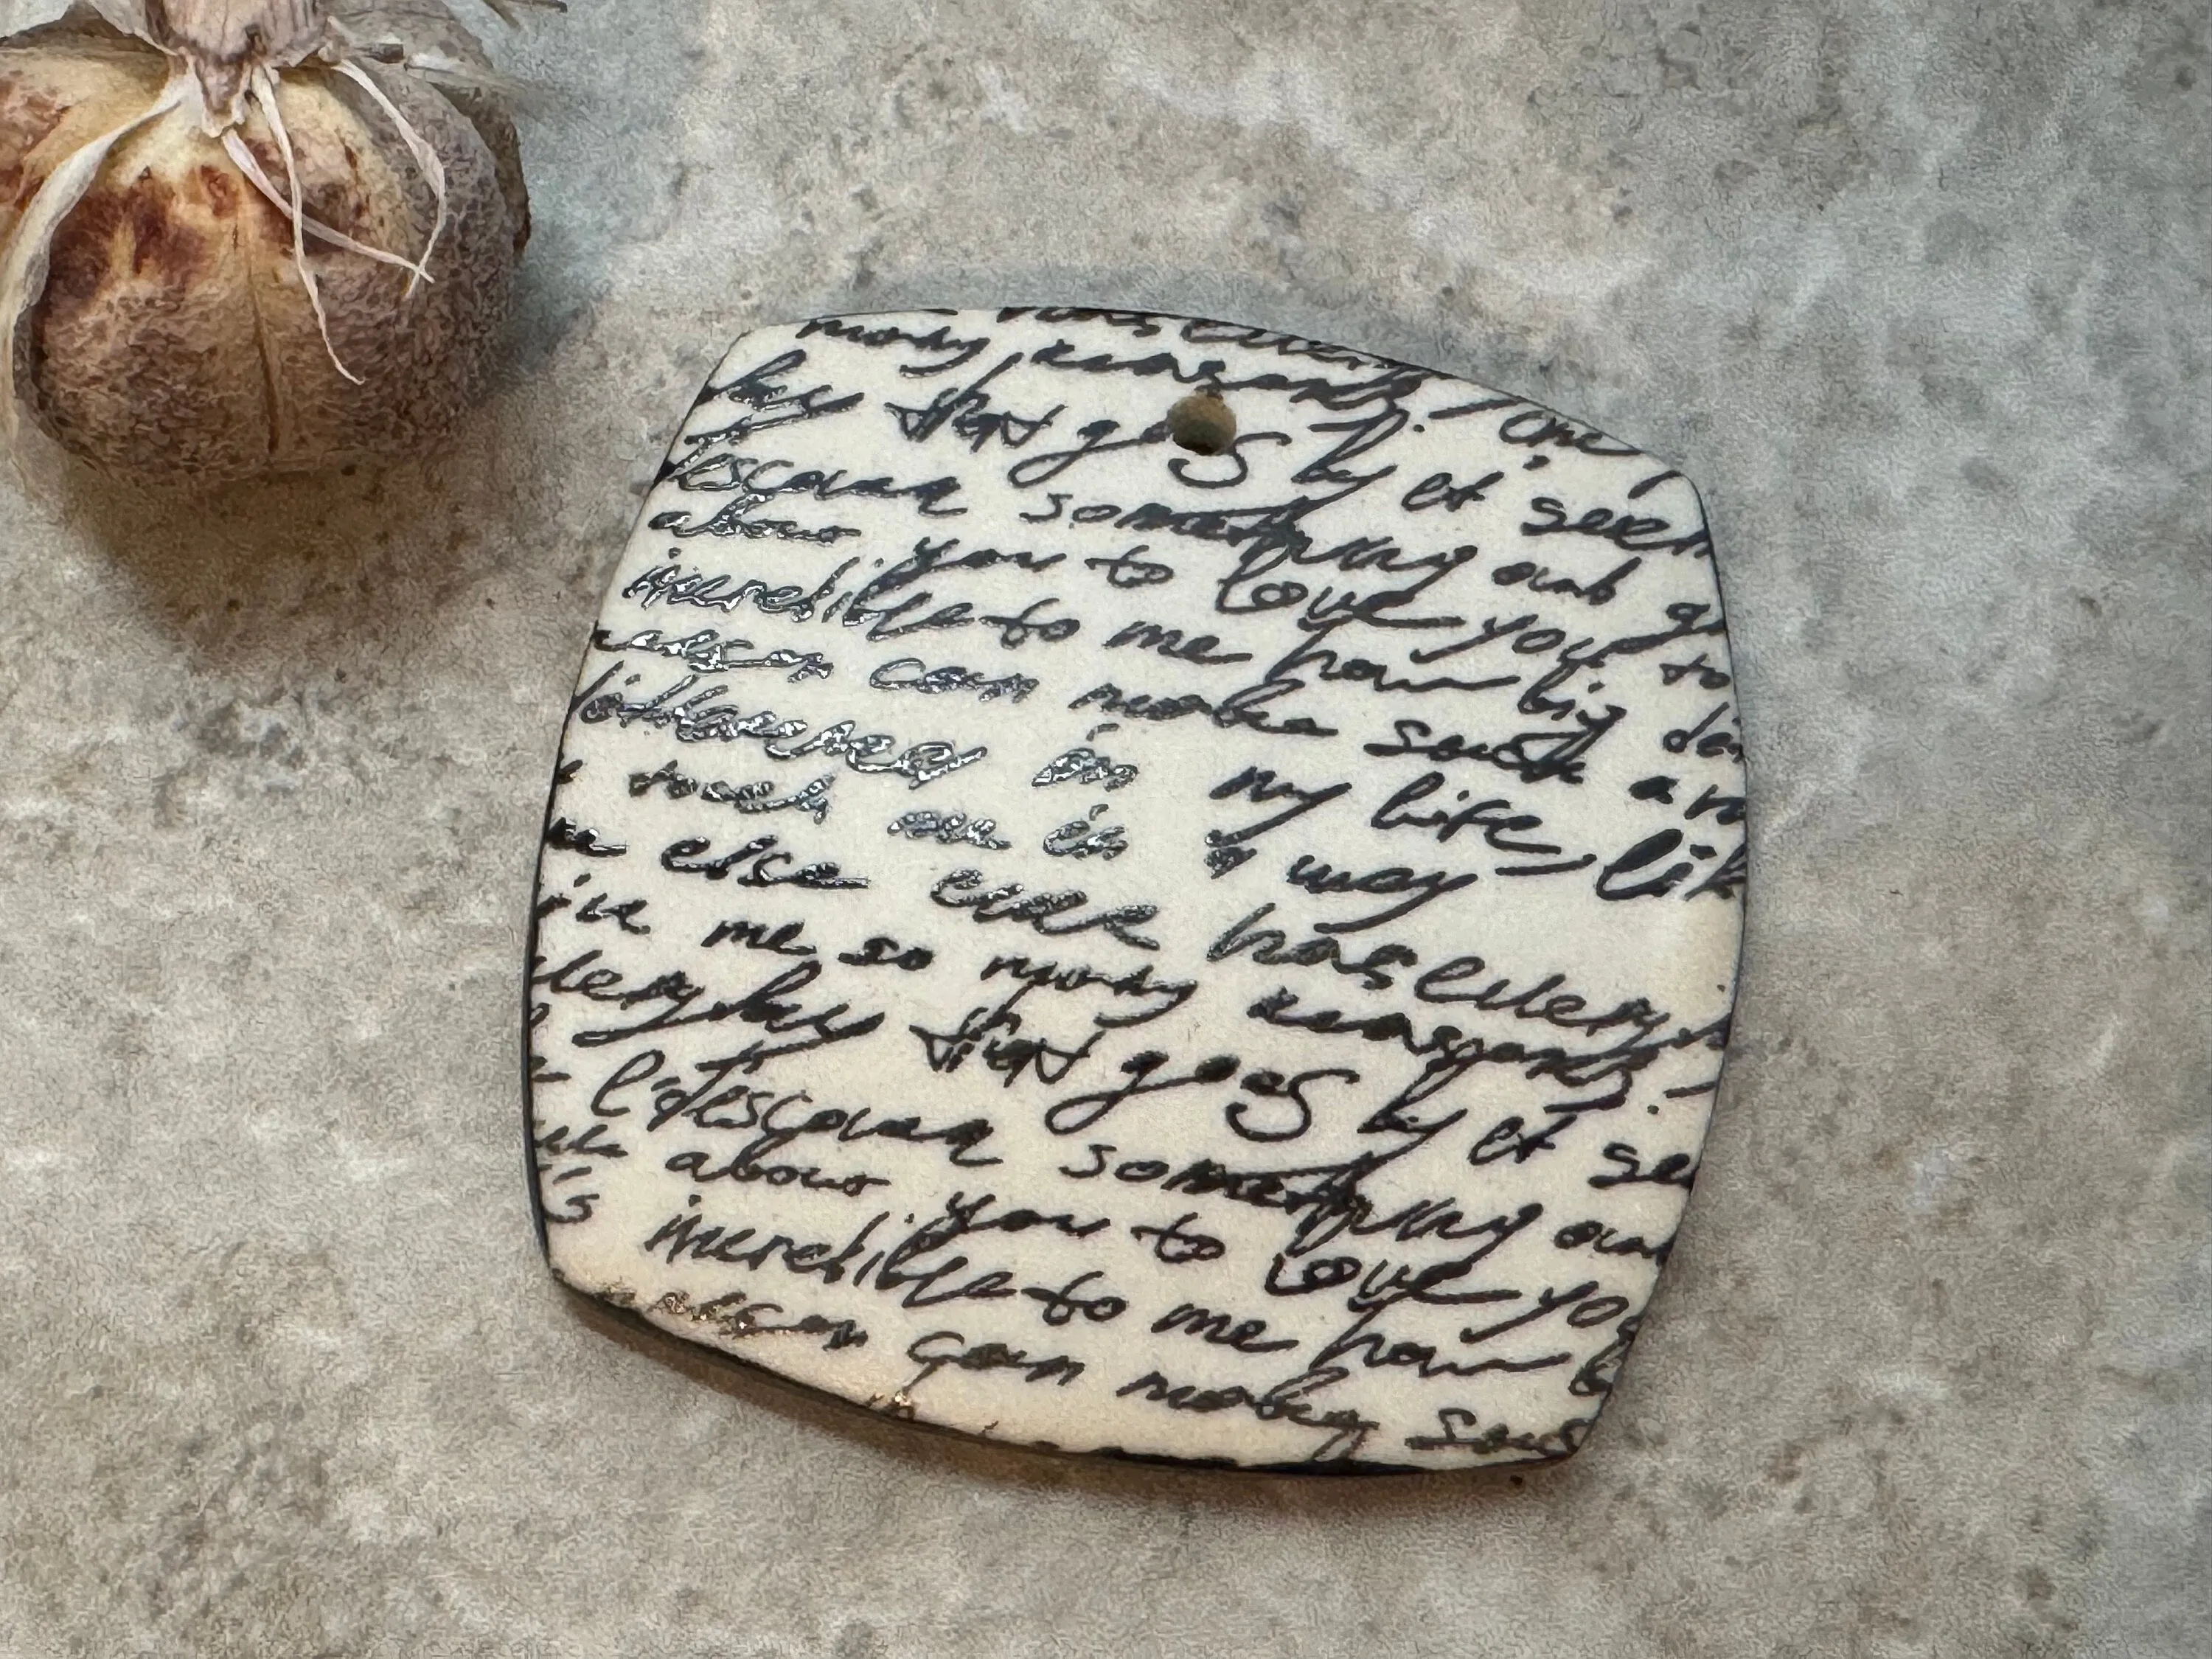 many reasons. One
day that goes by et seem
escover something and g
about you to love you to
incredible to me how big
person can make such a
difference in my life, lik
touch me in a way
else ever has Every
ive me so many reasons.
very day that goes by et se
I descover something and
about you to love you
's incredible to me how b
can make such